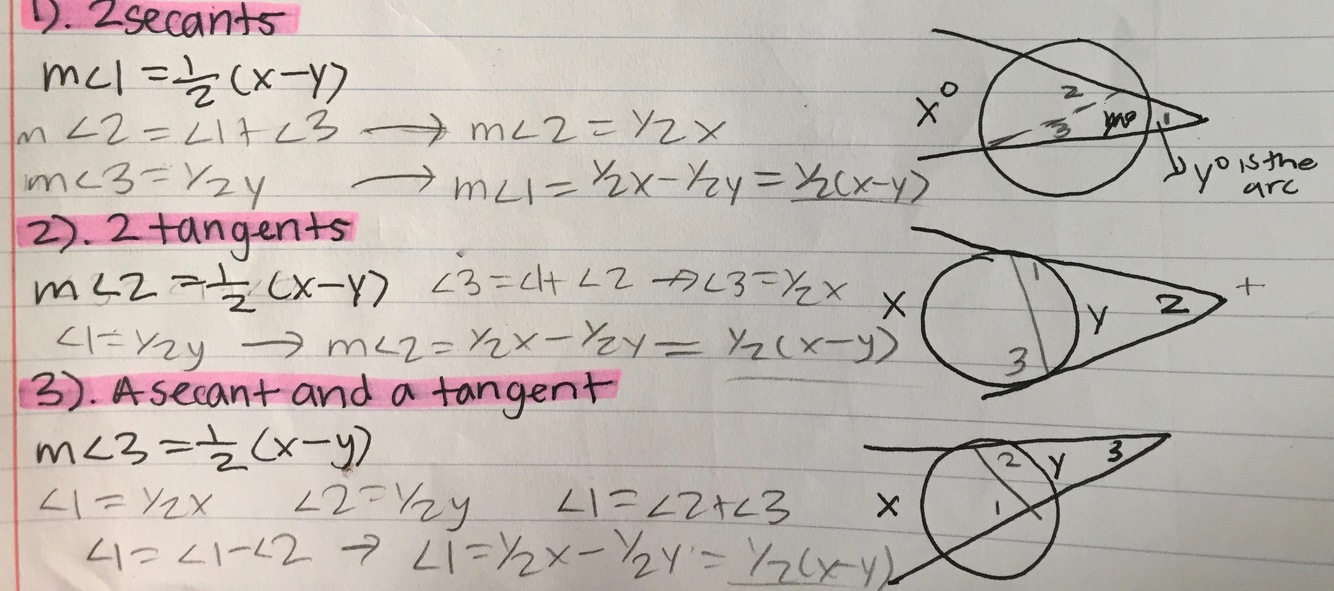 1). 2 secants
m<1 = 1/2 (x-y)
m<2 = <1+<3 → m<2 = 1/2x
m<3 = 1/2y → m<1 = 1/2x-1/2y = 1/2(x-y)
x°
2
3
1
y° is the
arc
2). 2 tangents
m<2 = 1/2 (x-y) <3 = <1+<2 → <3 = 1/2x
<1 = 1/2y → m<2 = 1/2x-1/2y = 1/2(x-y)
x
1
y
2
+
3
3). A secant and a tangent
m<3 = 1/2 (x-y)
<1 = 1/2x <2 = 1/2y <1 = <2+<3
<1 = <1-<2 → <1 = 1/2x-1/2y = 1/2(x-y)
2
y
3
x
1